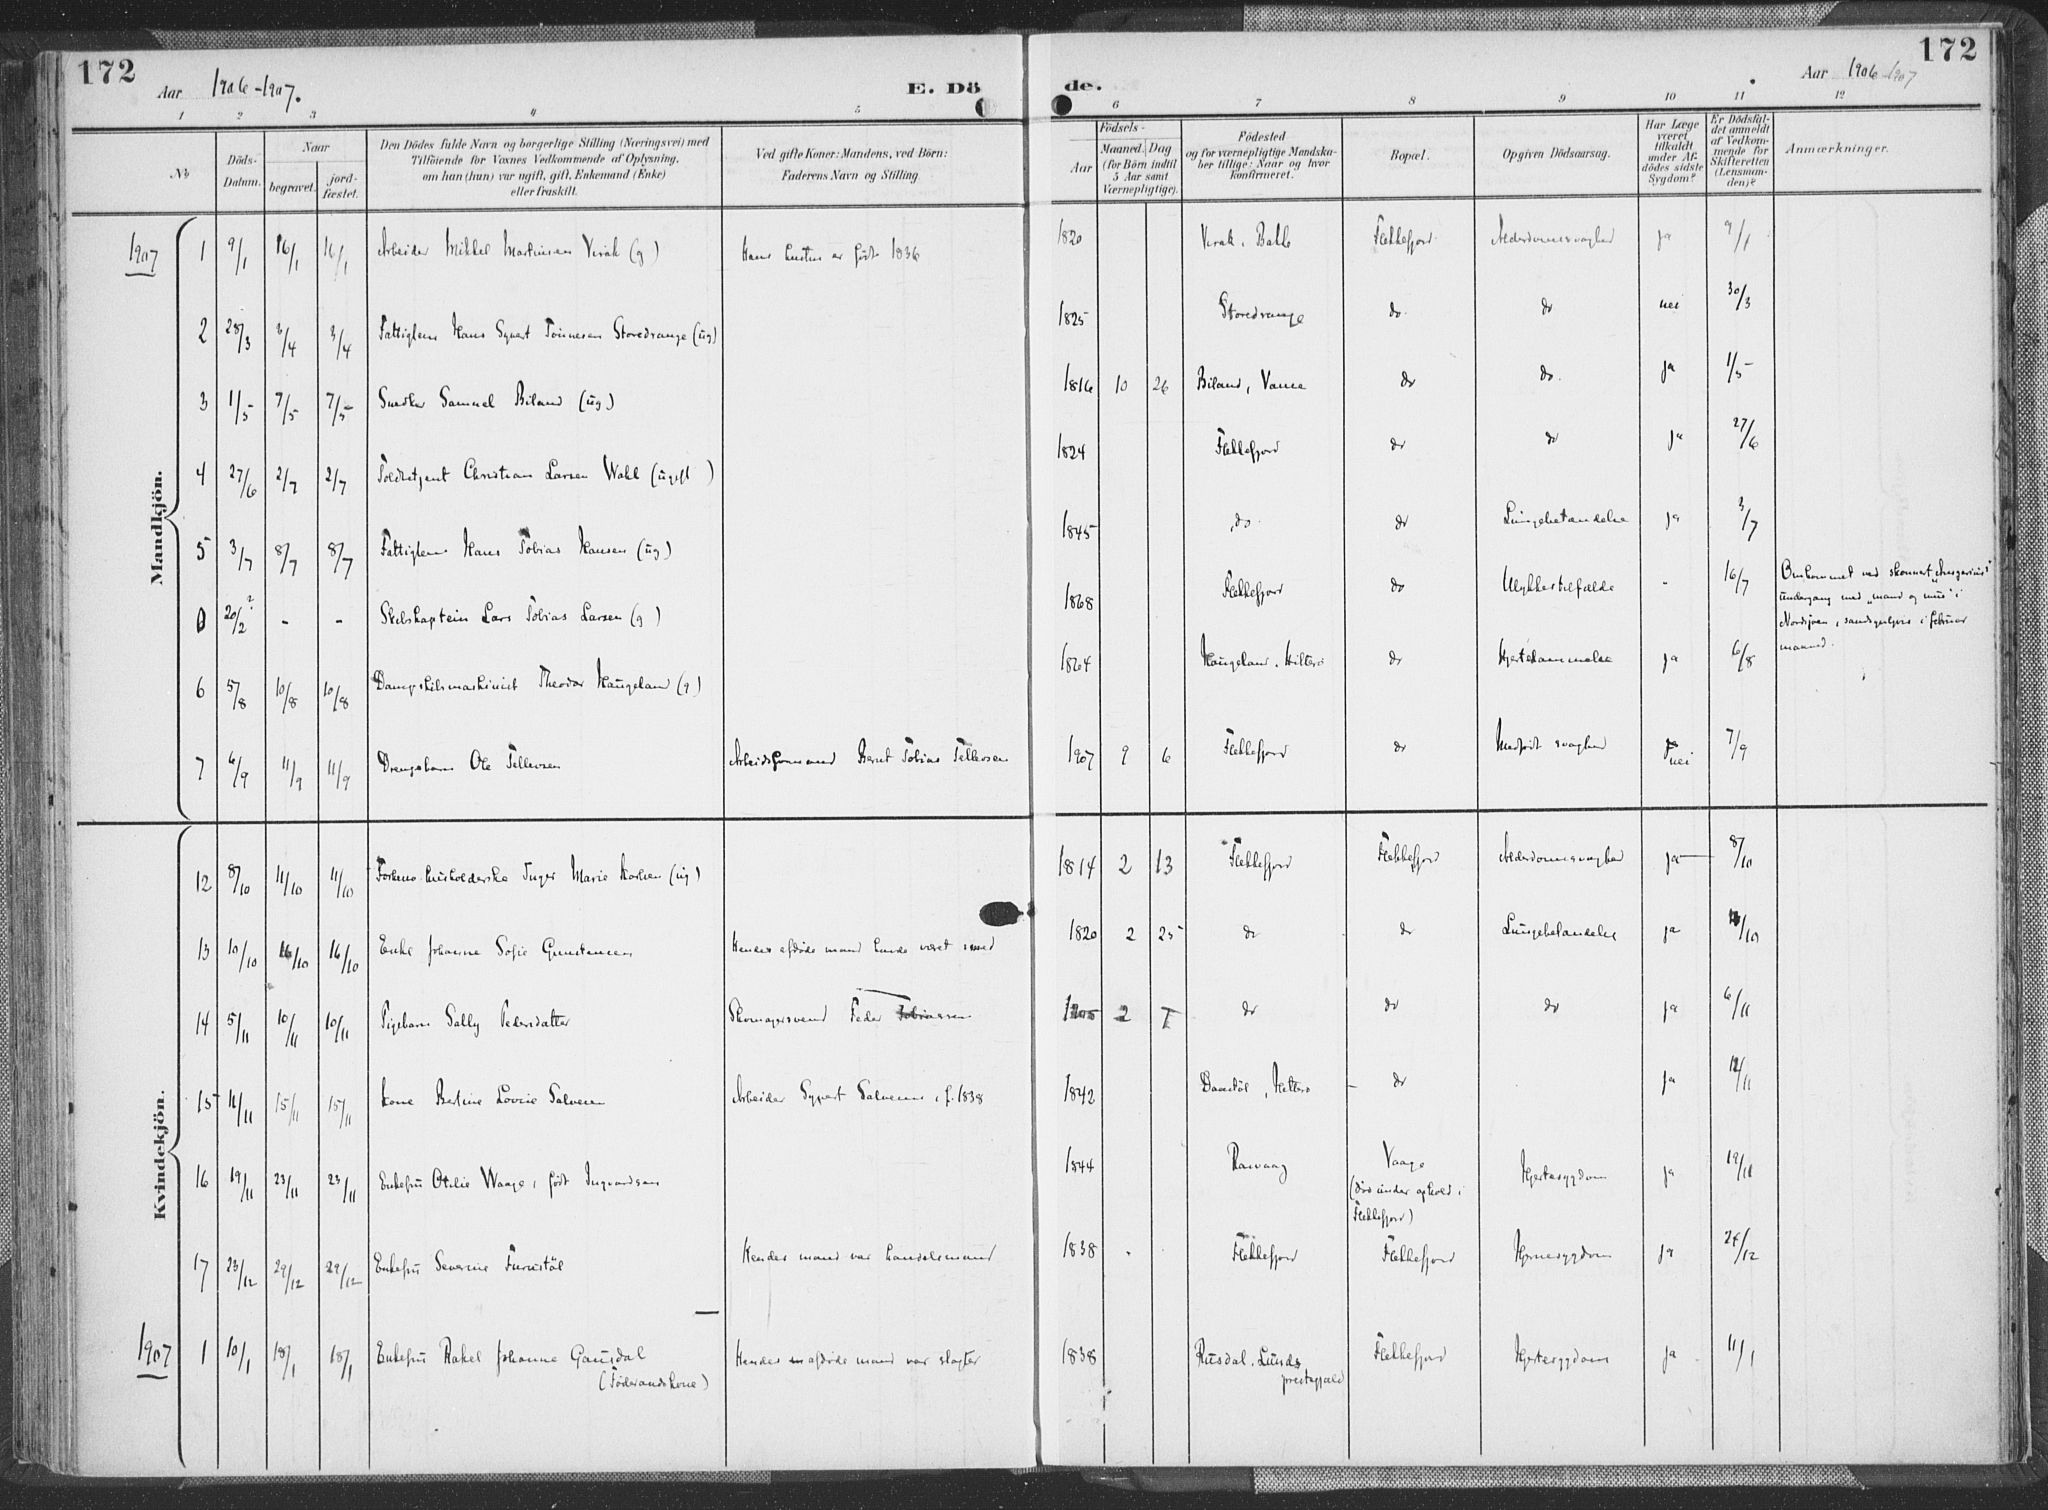 172
Aar 1906-1907.
E. Dö
de.
Aar 1906-1907
172
1 2 3 4 5 6 7 8 9 10 11 12
No
Döds-Datum.
Naar
begravet.
jord-fæstet.
Den Dödes fulde Navn og borgerlige Stilling (Næringsvei) med
Tilföiende for Voxnes Vedkommende af Oplysning,
om han (hun) var ugift, gift, Enkemand (Enke)
eller fraskilt.
Ved gifte Koner: Mandens, ved Börn:
Faderens Navn og Stilling.
Födsels-
Aar
Maaned. Dag
(for Börn indtil
5 Aar samt
Værnepligtige).
Födested
og for værnepligtige Mandska-
ber tillige: Naar og hvor
konfirmeret.
Bopæl.
Opgiven Dödsaarsag.
Har Læge
været
tilkaldt
under Af-
dödes sidste
Sygdom?
Er Dödsfal-
det anmeldt
af Vedkom-
mende for
Skifteretten
(Lensman-
den)?
Anmærkninger.
Mandkjön.
1907 1 9/1 16/1 16/1 Arbeider Mikkel Martinsen Virak (g) Hans hustru er født 1836 1820 Virak, Bakke Flekkefjord Alderdomssvaghed ja 9/1
2 28/3 3/4 3/4 Fattiglem Hans Syvert Tønnesen Storedrange (ug) 1825 Storedrange do do nei 30/3
3 1/5 7/5 7/5 Snedker Samuel Biland (ug) 1816 10 26 Biland, Vanse do do. ja 1/5
4 27/6 2/7 2/7 Toldbetjent Christian Larsen Wahl (ugift) 1824 Flekkefjord do do ja 27/6
5 3/7 8/7 8/7 Fattiglem Hans Tobias Hansen (ug) 1845 do do Lungebetændelse ja 3/7
0 20/2? - - Skibskaptein Lars Tobias Larsen (g) 1868 Flekkefjord do Ulykkestilfælde - 16/7 Omkommet ved skonnert "Ansgarius"
undergang med "mand og mus" i
Nordsjøen, sandsynligvis i februar
maaned.
6 5/8 10/8 10/8 Dampskibsmaskinist Theodor Haugeland (g) 1864 Haugeland, Hitterø do Hjertelammelse ja 6/8
7 6/9 11/9 11/9 Drengebarn Ole Tellevsen Arbeidsformand Bernt Tobias Tellevsen 1907 9 6 Flekkefjord do Medfødt svaghed nei 7/9
Kvindekjön.
12 8/10 11/10 11/10 Forhenv. husholderske Inger Marie Karlsen (ug) 1814 2 13 Flekkefjord Flekkefjord Alderdomssvaghed ja 8/10
13 10/10 16/10 16/10 Enke Johanne Sofie Gunstensen Hendes afdøde mand havde været smed 1820 2 25 do do Lungebetændelse ja /10
14 5/11 10/11 10/11 Pigebarn Sally Pedersdatter Skomagersvend Peder Tobiassen 2 do do do ja 6/11
15 11/11 15/11 15/11 Kone Bertine Lovise Salvesen Arbeider Syvert Salvesen, f. 1838 1842 Daastøl, Hitterø do ja 12/11
16 19/11 23/11 23/11 Enkefru Otilie Waage, født Ingvardsen 1844 Rasvaag Vaage
(død under ophold i
Flekkefjord) Hjertesygdom ja 19/11
17 23/12 29/12 29/12 Enkefru Severine Furustøl Hendes mand var handelsmand 1838 Flekkefjord Flekkefjord Hjernesygdom ja 24/12
1907 1 10/1 18/1 18/1 Enkefru Rakel Johanne Gausdal
(Føderaadskone) Hendes afdøde mand var slagter 1838 Rusdal, Lunds
prestegjeld Flekkefjord Hjertesygdom ja 11/1